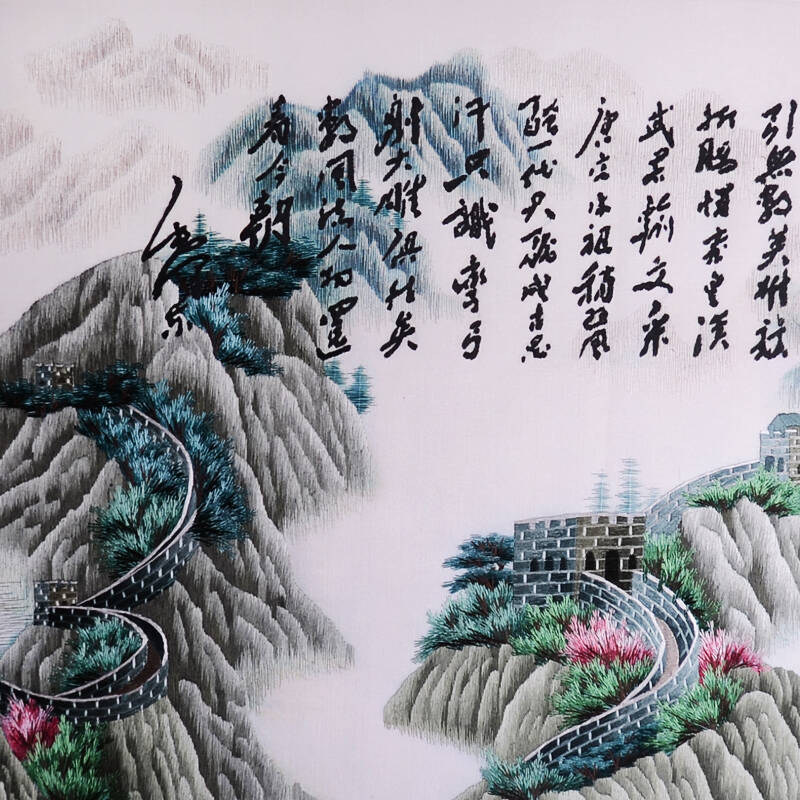 引無數英雄競
折腰惜秦皇漢
武略輸文采
唐宗宋祖稍遜風
騷一代天驕成吉思
汗只識彎弓
射大雕俱往矣
數風流人物還
看今朝
毛澤東